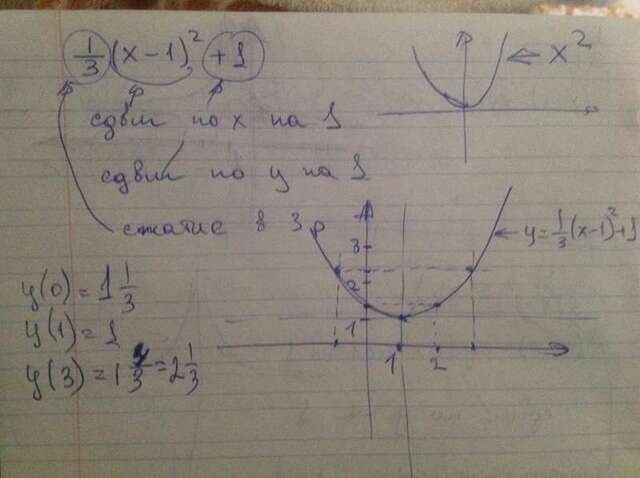 1/3 (x-1)² +1
← x²
сдвиг по x на 1
сдвиг по y на 1
сжатие в 3 р
← y=1/3(x-1)²+1
3
2
1
1 2
y(0) = 1 1/3
y(1) = 1
y(3) = 1 4/3 = 2 1/3